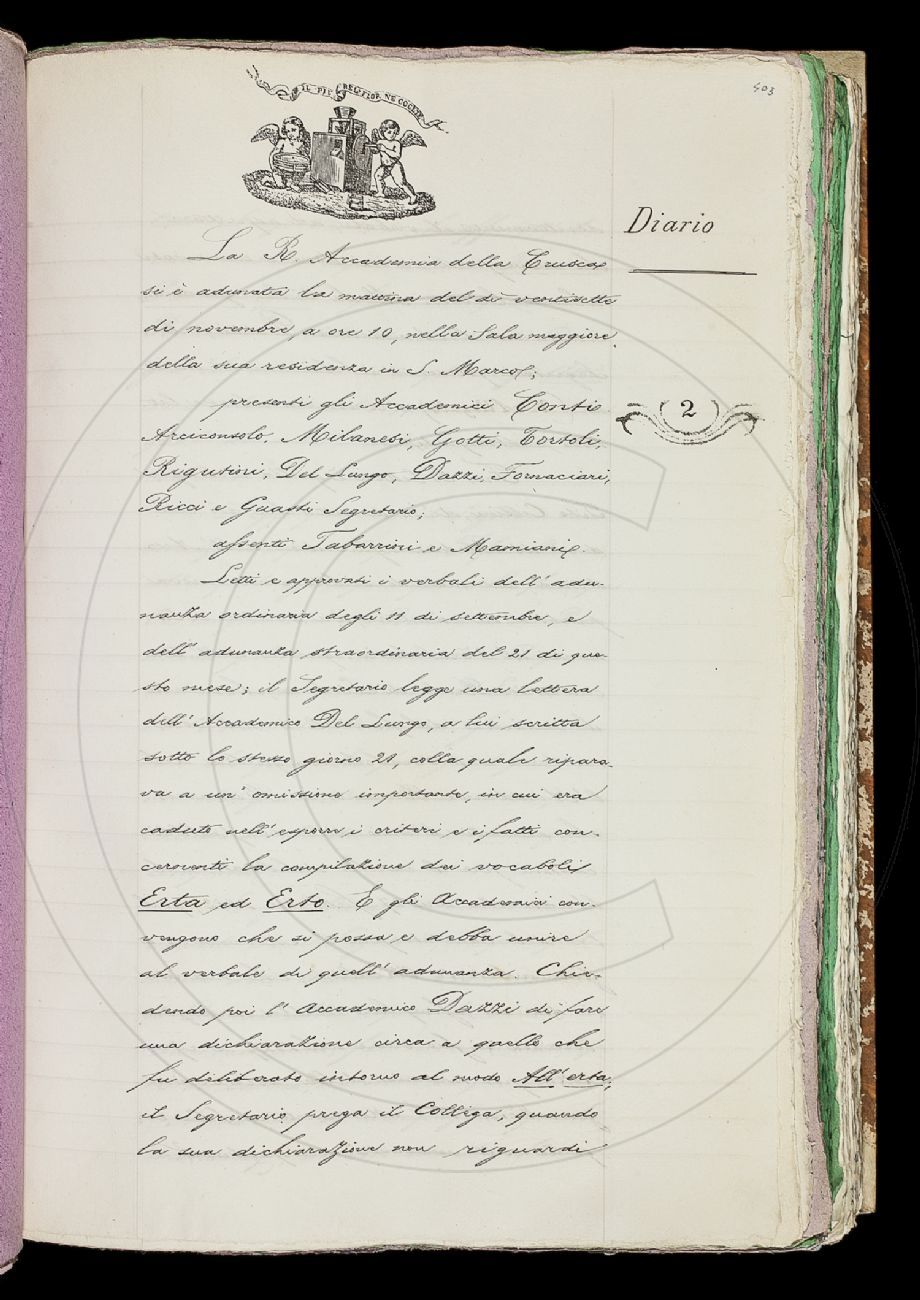 IL PIÙ BEL FIOR NE COGLIE
403
Diario
La R. Accademia della Crusca
si è adunata la mattina del dì ventisette
di novembre, a ore 10, nella Sala maggiore
della sua residenza in S. Marco;
2
presenti gli Accademici Conti
Arciconsolo, Milanesi, Gotti, Tortoli,
Rigutini, Del Lungo, Dazzi, Fornaciari,
Ricci e Guasti Segretario;
assenti Tabarrini e Mamiani.
Letti e approvati i verbali dell' adu-
nanza ordinaria degli 11 di settembre, e
dell' adunanza straordinaria del 21 di que-
sto mese; il Segretario legge una lettera
dell' Accademico Del Lungo, a lui scritta
sotto lo stesso giorno 21, colla quale ripara-
va a un' omissione importante, in cui era
caduto nell' esporre i criteri e i fatti con-
cernenti la compilazione dei vocaboli
Erta ed Erto. E gli Accademici con-
vengono che si possa e debba unire
al verbale di quell' adunanza. Chie-
dendo poi l' Accademico Dazzi di fare
una dichiarazione circa a quello che
fu deliberato intorno al modo All' erta;
il Segretario prega il Collega, quando
la sua dichiarazione non riguardi